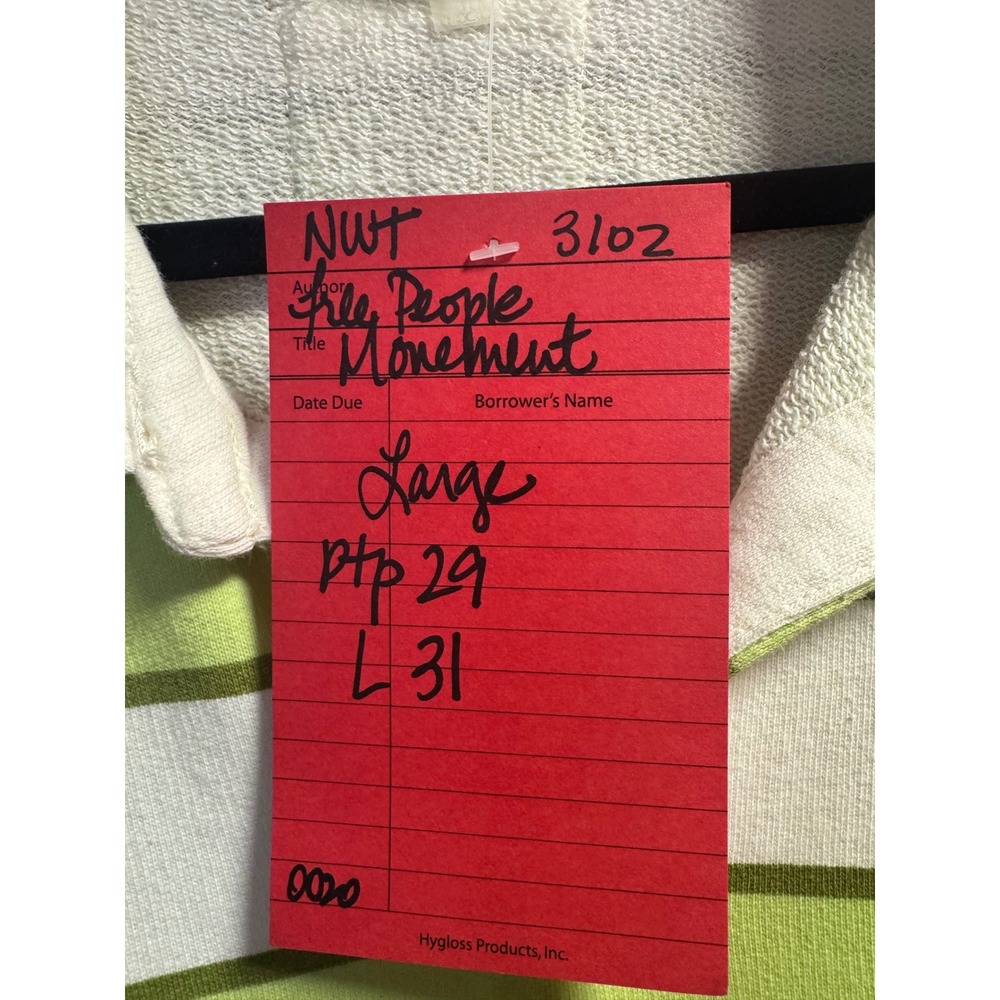 NWT 3102
Author
Free People
Title
Monement
Date Due Borrower's Name
Large
Ptp 29
L 31
0020
Hygloss Products, Inc.